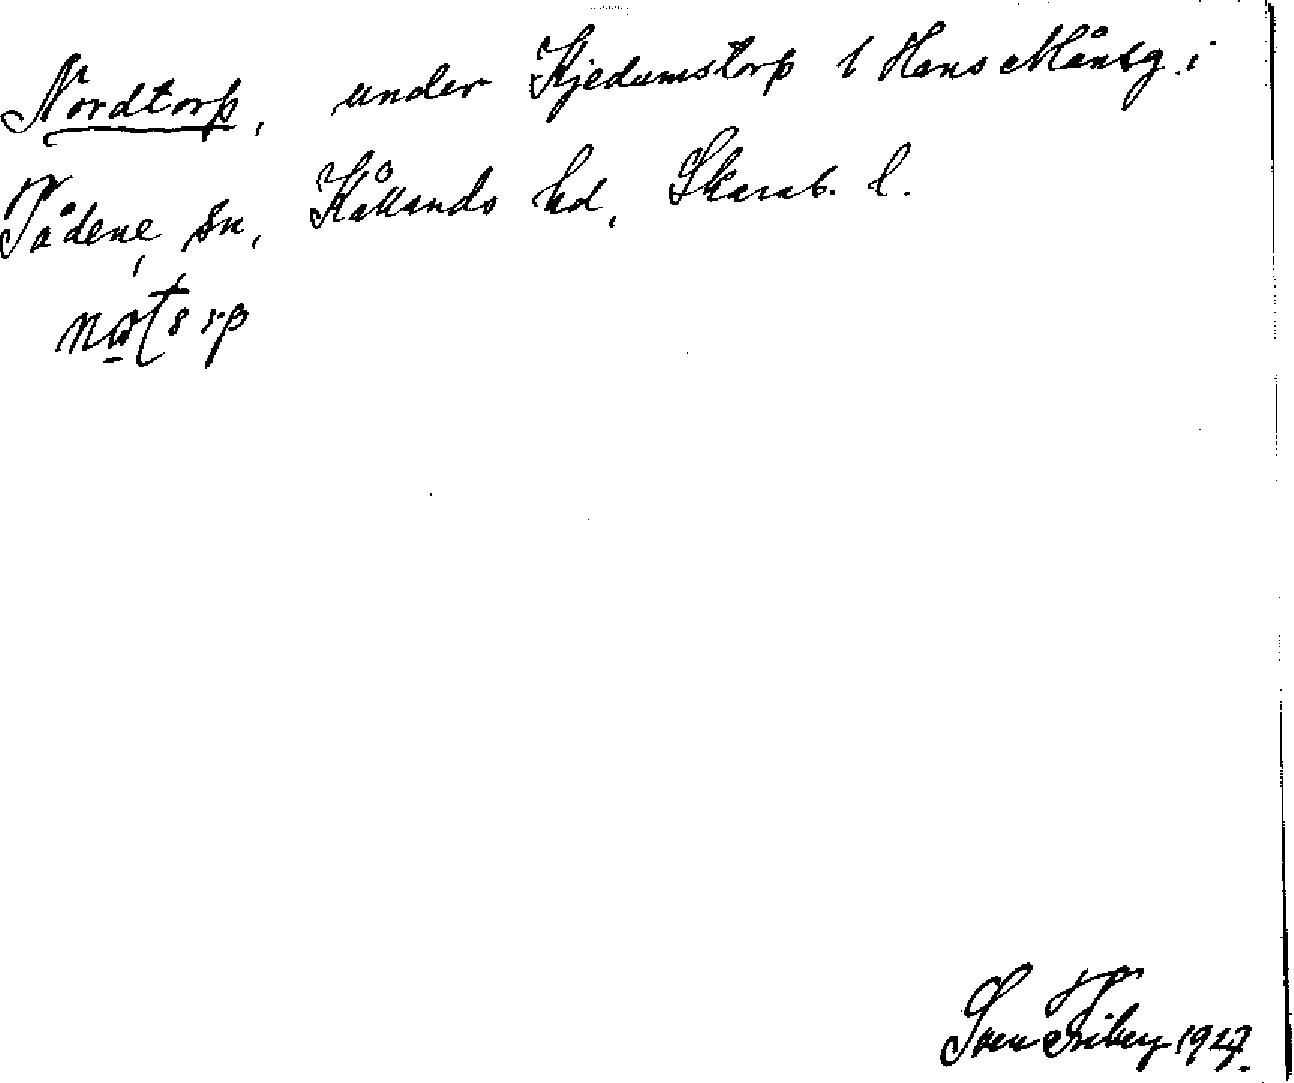 Nordtorp, under Kjedumstorp 1 Hans Månsg. i
Tådene sn, Kållands hd, Skarab. l.
Sven Friberg 1927.